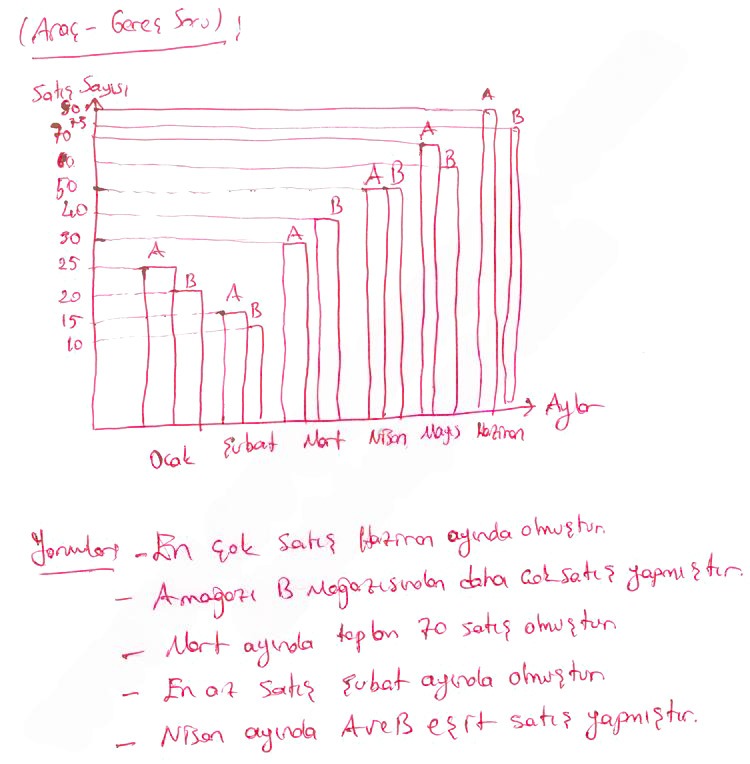 (Araç - Gereç Soru) ;
Satış Sayısı
80
75
70
60
50
40
30
25
20
15
10
A B
A B
A B
A B
A B
A B
Ocak Şubat Mart Nisan Mayıs Haziran
Aylar
Yorumlar; - En çok satış Haziran ayında olmuştur.
- A mağazı B Mağazasından daha çok satış yapmıştır.
- Mart ayında toplan 70 satış olmuştur
- En az satış Şubat ayında olmuştur
- Nisan ayında A ve B eşit satış yapmıştır.